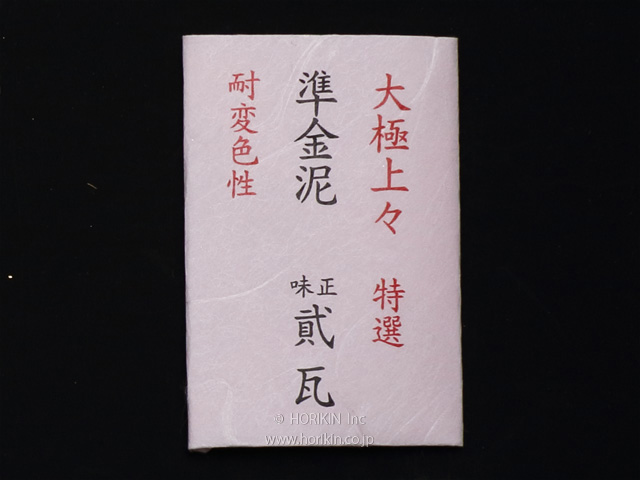 大極上々 特選
準金泥 正味 貮瓦
耐変色性
© HORIKIN Inc
www.horikin.co.jp